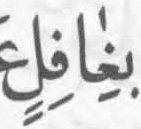 بِغَٰفِلٍ ع